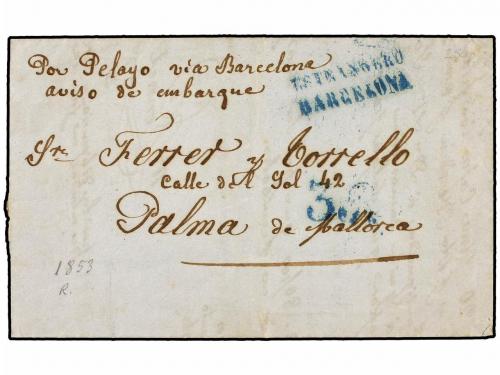 Por Pelayo via Barcelona
aviso de embarque
ESTRANGERO
BARCELONA
Sres Ferrer y Torrello
Calle del Sol 42
3
Palma de Mallorca
1853
R.